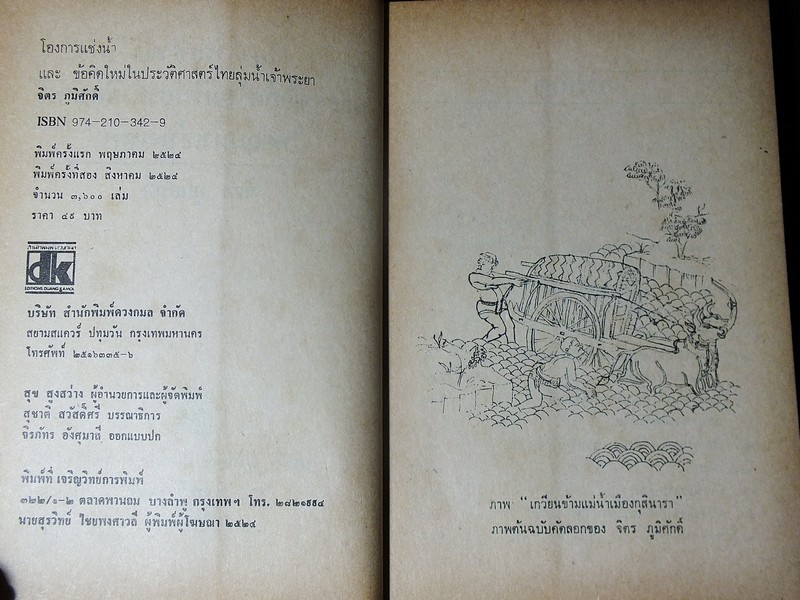 โองการแช่งน้ำ
และ ข้อคิดใหม่ในประวัติศาสตร์ไทยลุ่มน้ำเจ้าพระยา
จิตร ภูมิศักดิ์
ISBN 974-210-342-9
พิมพ์ครั้งแรก พฤษภาคม ๒๕๒๔
พิมพ์ครั้งที่สอง สิงหาคม ๒๕๒๔
จำนวน ๓,๖๐๐ เล่ม
ราคา ๔๙ บาท
สำนักพิมพ์ดวงกมล
dk
EDITIONS DUANG KAMOL
บริษัท สำนักพิมพ์ดวงกมล จำกัด
สยามสแควร์ ปทุมวัน กรุงเทพมหานคร
โทรศัพท์ ๒๕๑๖๓๓๕-๖
สุข สูงสว่าง ผู้อำนวยการและผู้จัดพิมพ์
สุชาติ สวัสดิ์ศรี บรรณาธิการ
จิรภัทร อังศุมาลี ออกแบบปก
พิมพ์ที่ เจริญวิทย์การพิมพ์
๓๒๒/๑-๒ ตลาดพานถม บางลำพู กรุงเทพฯ โทร. ๒๘๒๑๙๙๔
นายสุรวิทย์ ไชยพงศาวลี ผู้พิมพ์ผู้โฆษณา ๒๕๒๔
ภาพ "เกวียนข้ามแม่น้ำเมืองกุสินารา"
ภาพต้นฉบับคัดลอกของ จิตร ภูมิศักดิ์